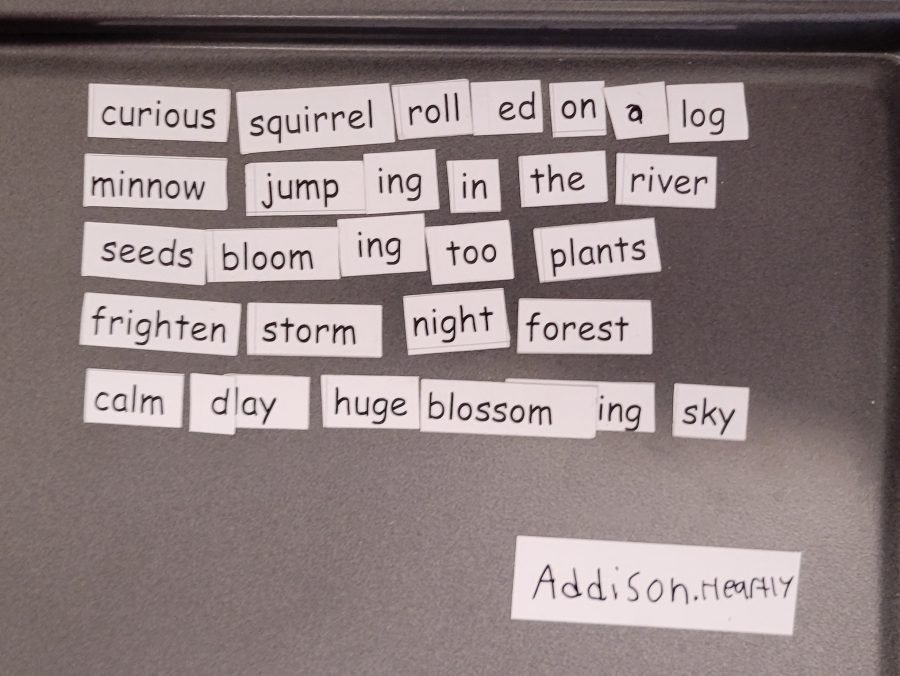 curious squirrel roll ed on a log
minnow jump ing in the river
seeds bloom ing too plants
frighten storm night forest
calm day huge blossom ing sky
Addison.Heartly